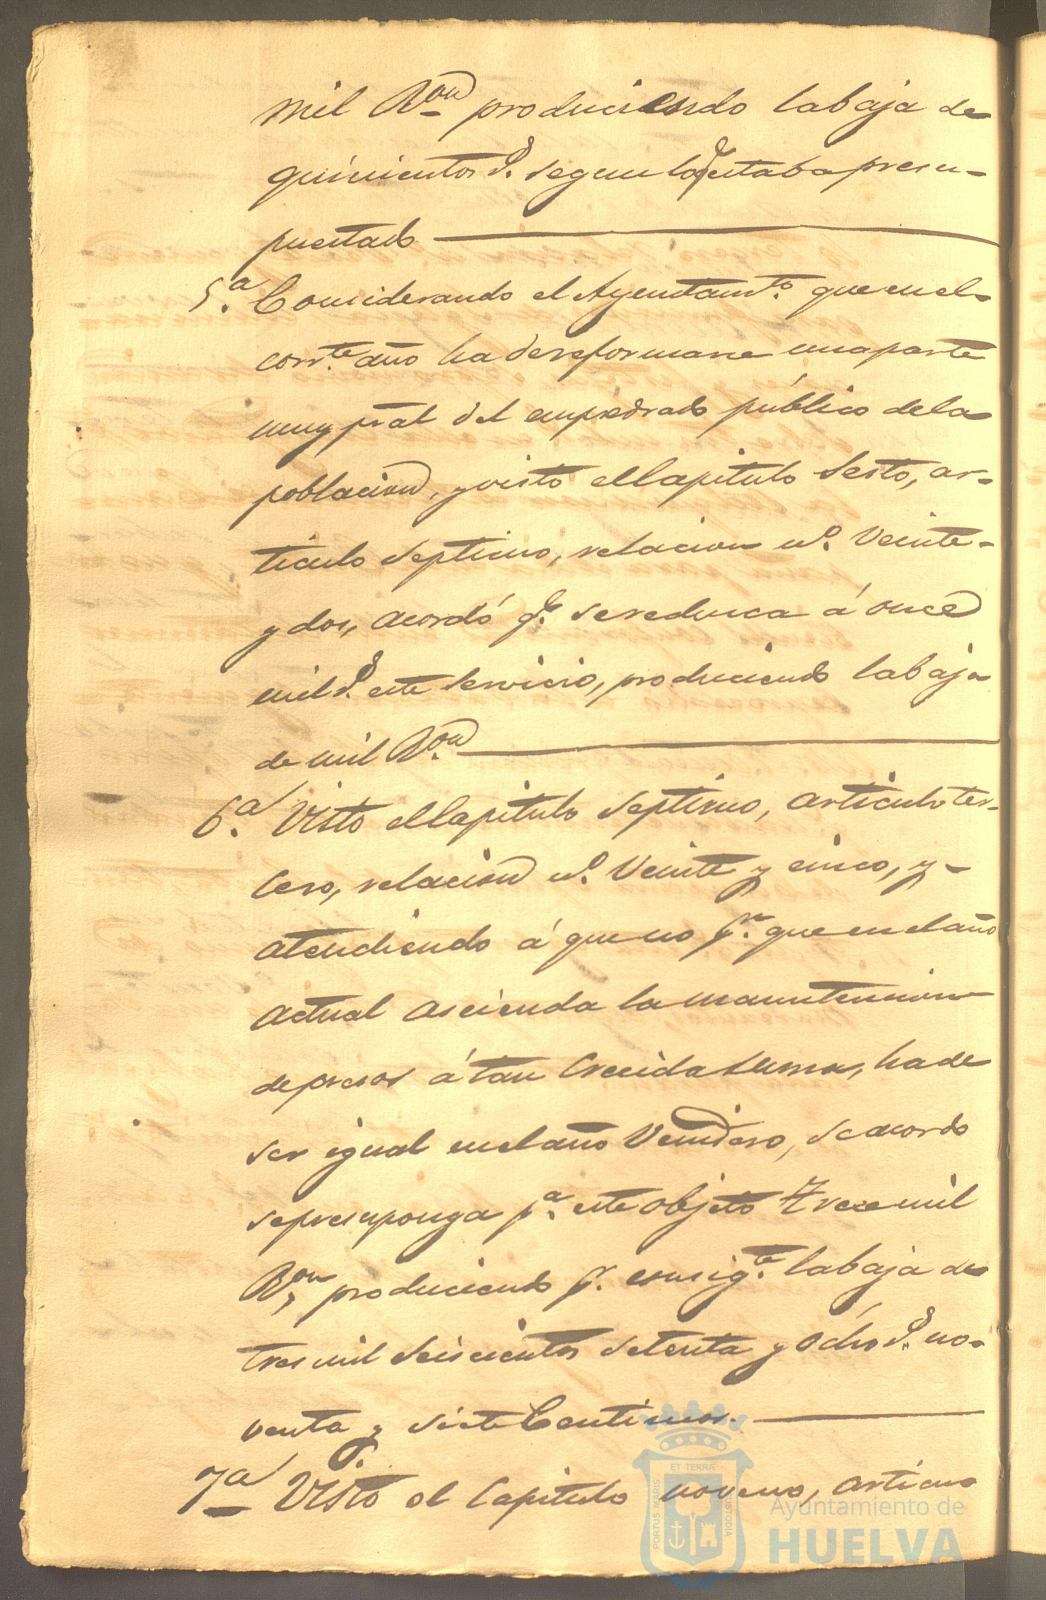 mil Ron produciendo la baja de
quinientos rs. segun lo q.e estaba presu-
puestado
5.a Considerando el Ayuntamt.o que en el
corrte. año ha de reformarse una parte
muy pral del empedrado público de la
poblacion, y visto el Capitulo Sesto, ar-
ticulo septimo, relacion n.o Veinte
y dos, acordó q.e se reduzca á once
mil rs. este servicio, produciendo la baja
de mil Ron
6.a Visto el Capitulo Septimo, articulo ter-
cero, relacion n.o Veinte y cinco, y
atendiendo á que no p.r que en el año
actual ascienda la manutencion
de presos á tan crecida suma, ha de
ser igual en el año Venidero, se acordo
se presuponga p.a este objeto Trece mil
Ron, produciendo p.r consig.te la baja de
tres mil seiscientos setenta y ocho rs. no-
venta y siete Centimos.
7.a Visto el Capitulo noveno, articulo
PORTUS MARIS ET TERRAE CUSTODIA
Ayuntamiento de
HUELVA